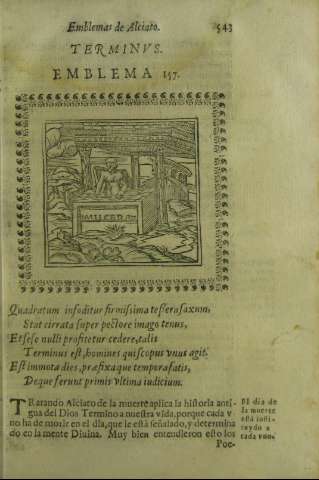 Emblemas de Alciato.
543
TERMINVS.
EMBLEMA 157.
Quadratum infoditur firmissima tessera saxum,
Stat cirrata super pectore imago tenus,
Et sese nulli profitetur cedere, talis
Terminus est, homines qui scopus vnus agit.
Est immota dies, præfixaque tempora fatis,
Deque ferunt primis vltima iudicium.
TRatando Alciato de la muerte aplica la historia anti-
gua del Dios Termino a nuestra vida, porque cada v
no ha de morir en el dia, que le està señalado, y determina
do en la mente Diuina. Muy bien entendieron esto los
Poe-
El dia de
la muerte
està
a
cada vno.